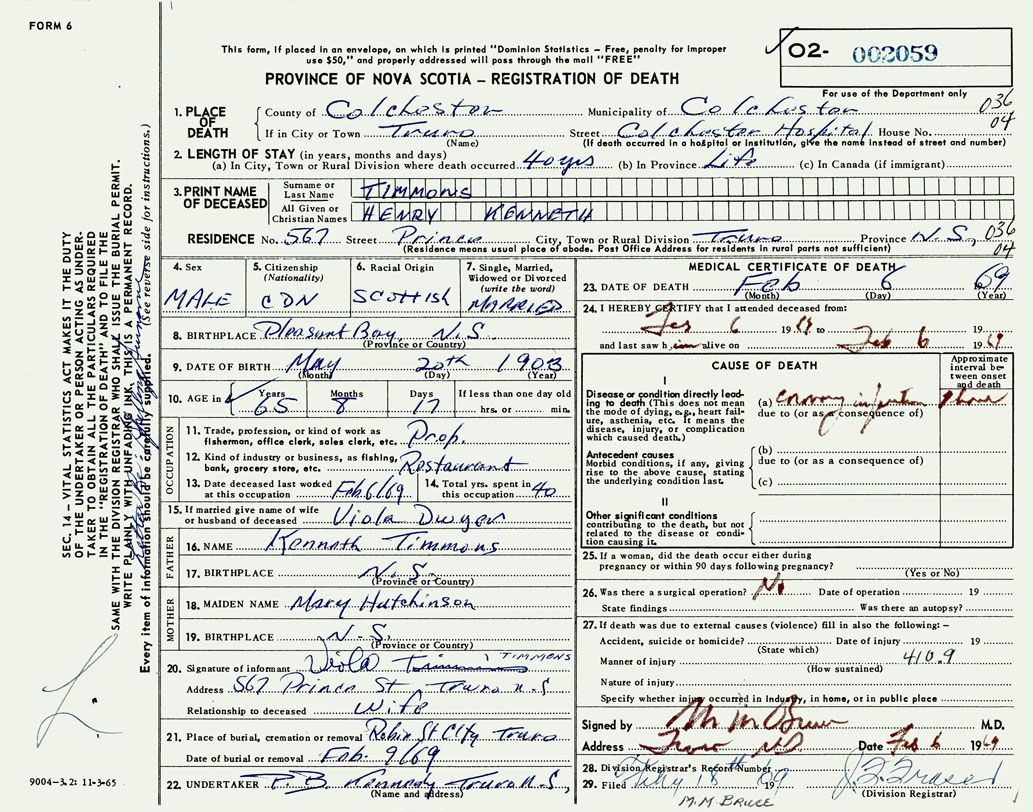 FORM 6
This form, if placed in an envelope, on which is printed "Dominion Statistics – Free, penalty for improper
use $50," and properly addressed will pass through the mail "FREE"
02- 002059
For use of the Department only
PROVINCE OF NOVA SCOTIA – REGISTRATION OF DEATH
1. PLACE OF DEATH County of Colchester Municipality of Colchester 036
If in City or Town Truro Street Colchester Hospital House No. 04
(Name) (If death occurred in a hospital or institution, give the name instead of street and number)
2. LENGTH OF STAY (in years, months and days)
(a) In City, Town or Rural Division where death occurred 40 yrs (b) In Province Life (c) In Canada (if immigrant)
3. PRINT NAME OF DECEASED Surname or Last Name TIMMONS
All Given or Christian Names HENRY KENNETH
RESIDENCE No. 567 Street Prince City, Town or Rural Division Truro Province N.S, 036
(Residence means usual place of abode. Post Office Address for residents in rural parts not sufficient) 04
4. Sex MALE
5. Citizenship (Nationality) CDN
6. Racial Origin SCOTTISH
7. Single, Married, Widowed or Divorced (write the word) MARRIED
8. BIRTHPLACE Pleasant Bay, N.S
(Province or Country)
9. DATE OF BIRTH May 20th 1903
(Month) (Day) (Year)
10. AGE in Years Months Days If less than one day old
65 8 17 hrs. or min.
OCCUPATION
11. Trade, profession or kind of work as fisherman, office clerk, sales clerk, etc. Prop.
12. Kind of industry or business, as fishing, bank, grocery store, etc. Restaurant
13. Date deceased last worked at this occupation Feb 6/69
14. Total yrs. spent in this occupation 40
15. If married give name of wife or husband of deceased Viola Dwyer
FATHER
16. NAME Kenneth Timmons
17. BIRTHPLACE N.S.
(Province or Country)
MOTHER
18. MAIDEN NAME Mary Hutchinson
19. BIRTHPLACE N.S.
(Province or Country)
20. Signature of informant Viola Timmons TIMMONS
Address 567 Prince St Truro N.S
Relationship to deceased Wife
21. Place of burial, cremation or removal Robie St City Truro
Date of burial or removal Feb. 9/69
22. UNDERTAKER P.B. Kennedy Truro N.S,
(Name and address)
MEDICAL CERTIFICATE OF DEATH
23. DATE OF DEATH Feb 6 1969
(Month) (Day) (Year)
24. I HEREBY CERTIFY that I attended deceased from:
Feb 6 1969 to 19
and last saw him alive on Feb 6 1969
CAUSE OF DEATH
Approximate interval between onset and death
I
Disease or condition directly leading to death (This does not mean the mode of dying, e.g., heart failure, asthenia, etc. It means the disease, injury, or complication which caused death.)
(a) coronary infarction 1 hour
due to (or as a consequence of)
Antecedent causes
Morbid conditions, if any, giving rise to the above cause, stating the underlying condition last.
(b)
due to (or as a consequence of)
(c)
II
Other significant conditions
contributing to the death, but not related to the disease or condition causing it.
25. If a woman, did the death occur either during pregnancy or within 90 days following pregnancy?
(Yes or No)
26. Was there a surgical operation? No Date of operation 19
State findings Was there an autopsy?
27. If death was due to external causes (violence) fill in also the following:–
Accident, suicide or homicide? Date of injury 19
(State which)
Manner of injury 410.9
(How sustained)
Nature of injury
Specify whether injury occurred in Industry, in home, or in public place
Signed by M M Bruce M.D.
Address Truro NS Date Feb 6 1969
28. Division Registrar's Record Number
29. Filed 19 69
(Division Registrar)
M.M. BRUCE
SEC. 14 – VITAL STATISTICS ACT MAKES IT THE DUTY
OF THE UNDERTAKER OR PERSON ACTING AS UNDER-
TAKER TO OBTAIN ALL THE PARTICULARS REQUIRED
IN THE "REGISTRATION OF DEATH" AND TO FILE THE
SAME WITH THE DIVISION REGISTRAR WHO SHALL ISSUE THE BURIAL PERMIT.
WRITE PLAINLY WITH UNFADING INK, THIS IS A PERMANENT RECORD.
Every item of information should be carefully supplied. (See reverse side for instructions.)
9004-3.2: 11-3-65